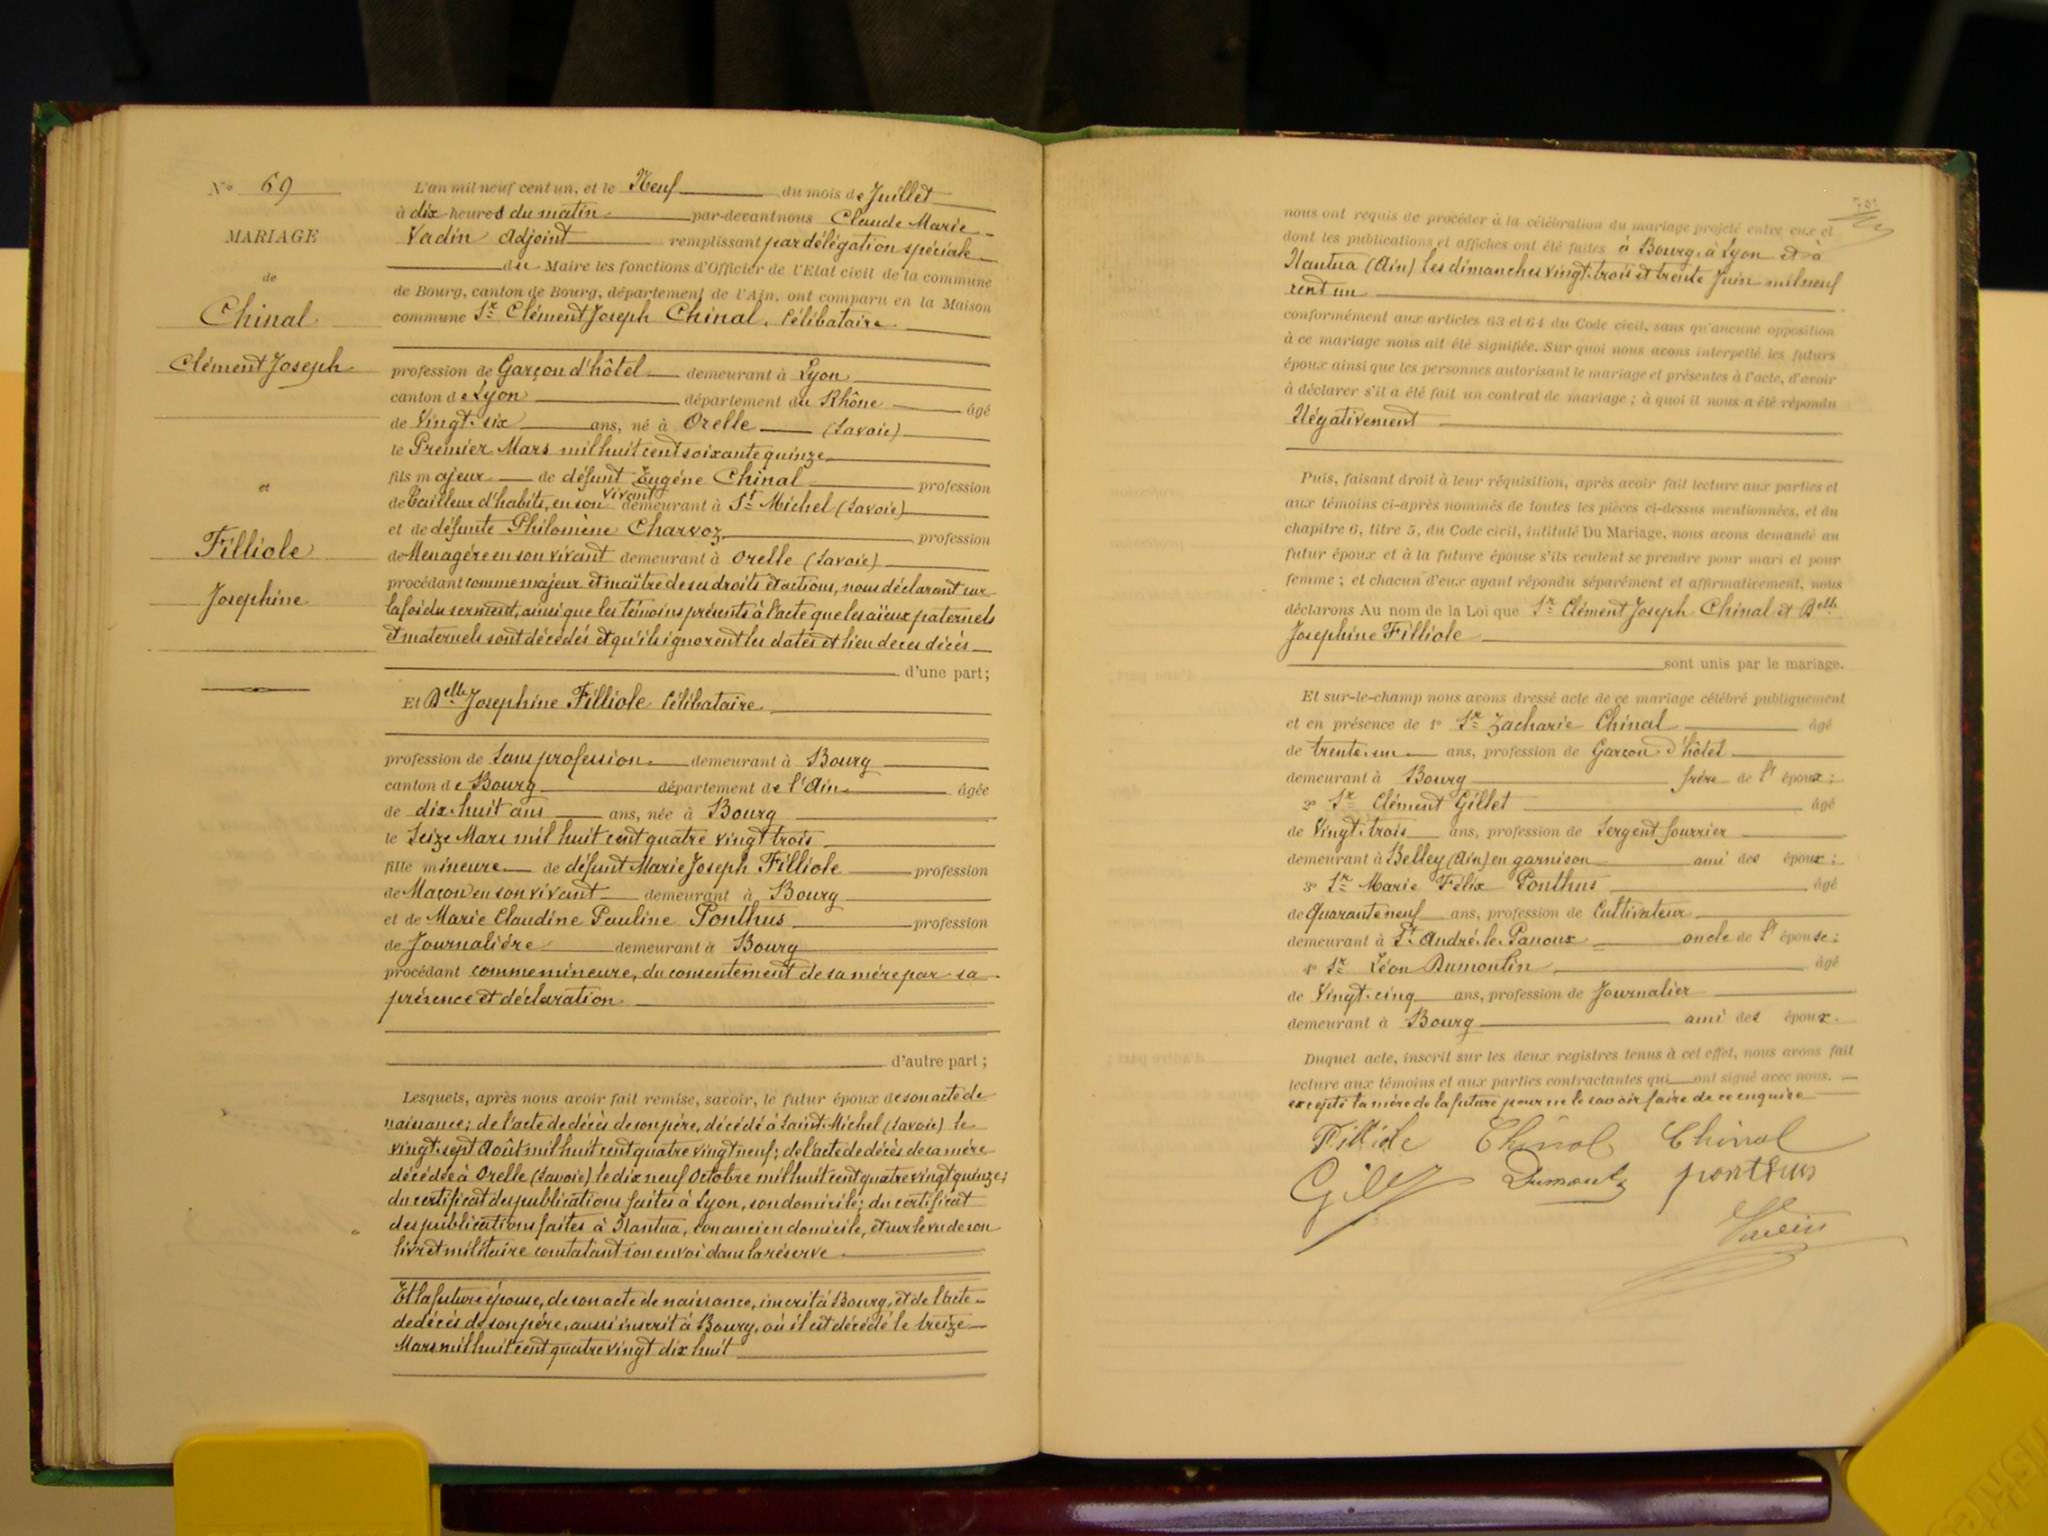 N° 69
MARIAGE
de
Chinal
Clément Joseph
et
Filliole
Josephine
L'an mil neuf cent un, et le Neuf du mois de Juillet
à dix heures du matin par-devant nous Claude Marie
Vadin Adjoint remplissant par délégation spéciale
du Maire les fonctions d'Officier de l'Etat civil de la commune
de Bourg, canton de Bourg, département de l'Ain, ont comparu en la Maison
commune Sr Clément Joseph Chinal, Célibataire
profession de Garçon d'hôtel demeurant à Lyon
canton de Lyon département du Rhône âgé
de Vingt-six ans, né à Orelle (Savoie)
le Premier Mars mil huit cent soixante quinze
fils majeur de défunt Eugène Chinal profession
de Tailleur d'habits, en son vivant demeurant à St Michel (Savoie)
et de défunte Philomène Charvoz profession
de Menagère en son vivant demeurant à Orelle (Savoie)
procédant comme majeur et maître de ses droits et actions, nous déclarant sur
la foi du serment, ainsi que les témoins présents à l'acte que les aïeux paternels
et maternels sont décédés et qu'ils ignorent les dates et lieu de ces décès
d'une part;
Et Delle Josephine Filliole Célibataire
profession de Sans profession demeurant à Bourg
canton de Bourg département de l'Ain âgée
de dix-huit ans ans, née à Bourg
le Seize Mars mil huit cent quatre vingt trois
fille mineure de défunt Marie Joseph Filliole profession
de Maçon en son vivant demeurant à Bourg
et de Marie Claudine Pauline Ponthus profession
de Journalière demeurant à Bourg
procédant comme mineure, du consentement de sa mère par sa
présence et déclaration
d'autre part;
Lesquels, après nous avoir fait remise, savoir, le futur époux de son acte de
naissance; de l'acte de décès de son père, décédé à Saint-Michel (Savoie) le
vingt-sept Août mil huit cent quatre vingt neuf; de l'acte de décès de sa mère
décédée à Orelle (Savoie) le dix neuf Octobre mil huit cent quatre vingt quinze;
du certificat des publications faites à Lyon, son domicile; du certificat
des publications faites à Nantua, son ancien domicile, et sur le vu de son
livret militaire constatant son envoi dans la réserve
Et la future épouse, de son acte de naissance, inscrit à Bourg, et de l'acte
de décès de son père, aussi inscrit à Bourg, où il est décédé le treize
Mars mil huit cent quatre vingt dix huit
nous ont requis de procéder à la célébration du mariage projeté entre eux et
dont les publications et affiches ont été faites à Bourg, à Lyon et à
Nantua (Ain) les dimanches vingt-trois et trente Juin mil neuf
cent un
conformément aux articles 63 et 64 du Code civil, sans qu'aucune opposition
à ce mariage nous ait été signifiée. Sur quoi nous avons interpellé les futurs
époux ainsi que les personnes autorisant le mariage et présentes à l'acte, d'avoir
à déclarer s'il a été fait un contrat de mariage; à quoi il nous a été répondu
Négativement
Puis, faisant droit à leur réquisition, après avoir fait lecture aux parties et
aux témoins ci-après nommés de toutes les pièces ci-dessus mentionnées, et du
chapitre 6, titre 5, du Code civil, intitulé Du Mariage, nous avons demandé au
futur époux et à la future épouse s'ils veulent se prendre pour mari et pour
femme; et chacun d'eux ayant répondu séparément et affirmativement, nous
déclarons Au nom de la Loi que Sr Clément Joseph Chinal et Delle
Josephine Filliole
sont unis par le mariage.
Et sur-le-champ nous avons dressé acte de ce mariage célébré publiquement
et en présence de 1° Sr Zacharie Chinal âgé
de trente-un ans, profession de Garçon d'hôtel
demeurant à Bourg frère de l' époux;
2° Sr Clément Gillet âgé
de Vingt-trois ans, profession de Sergent fourrier
demeurant à Belley (Ain) en garnison ami des époux;
3° Sr Marie Félix Ponthus âgé
de Quarante neuf ans, profession de Cultivateur
demeurant à St André-le-Panoux oncle de l' épouse;
4° Sr Léon Dumoulin âgé
de Vingt-cinq ans, profession de Journalier
demeurant à Bourg ami des époux.
Duquel acte, inscrit sur les deux registres tenus à cet effet, nous avons fait
lecture aux témoins et aux parties contractantes qui ont signé avec nous.
excepté la mère de la future pour ne le savoir faire de ce enquise
Filliole Chinal Chinal
Gillet Dumoulin ponthus
Vadin